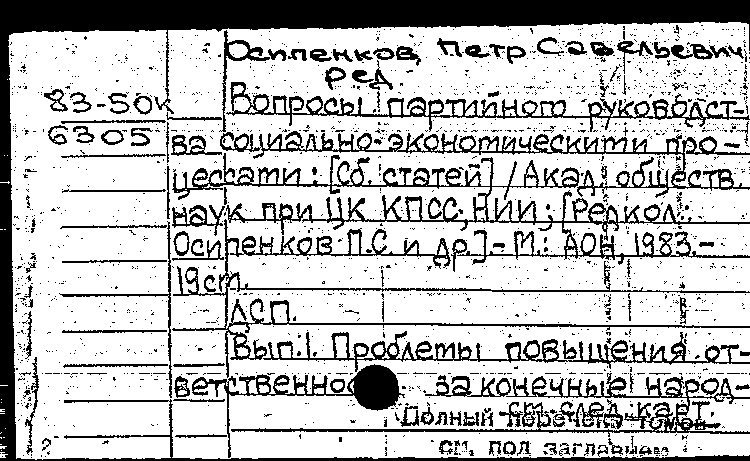 Осипенков, Петр Савельевич
ред.
83-50к Вопросы партийного руководст-
6305 ва социально-экономическими про-
цессами: [Сб. статей] / Акад. обществ.
наук при ЦК КПСС, НИИ; [Редкол.:
Осипенков П.С. и др.].- М.: АОН, 1983.-
19см.
ДСП.
Вып.1. Проблемы повышения от-
ветственнос за конечные народ-
см. след. карт.
Полный перечень томов
см. под заглавием
2